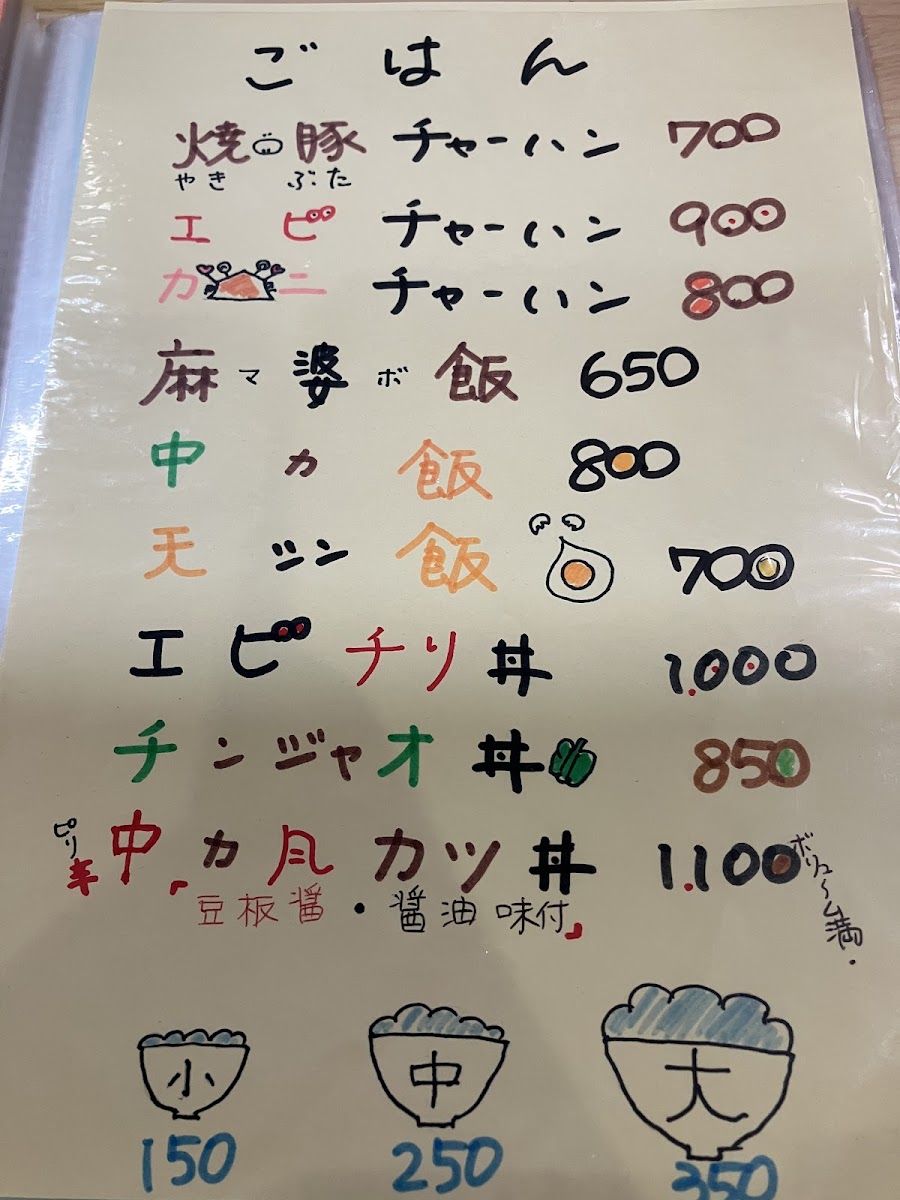 ごはん
焼豚 チャーハン 700
やき ぶた
エビ チャーハン 900
カニ チャーハン 800
麻マ婆ボ飯 650
中カ飯 800
天シン飯 700
エビチリ丼 1.000
チンジャオ丼 850
ピリ辛 中カ風カツ丼 1.100 ボリューム満.
「豆板醤・醤油味付」
小 中 大
150 250 350